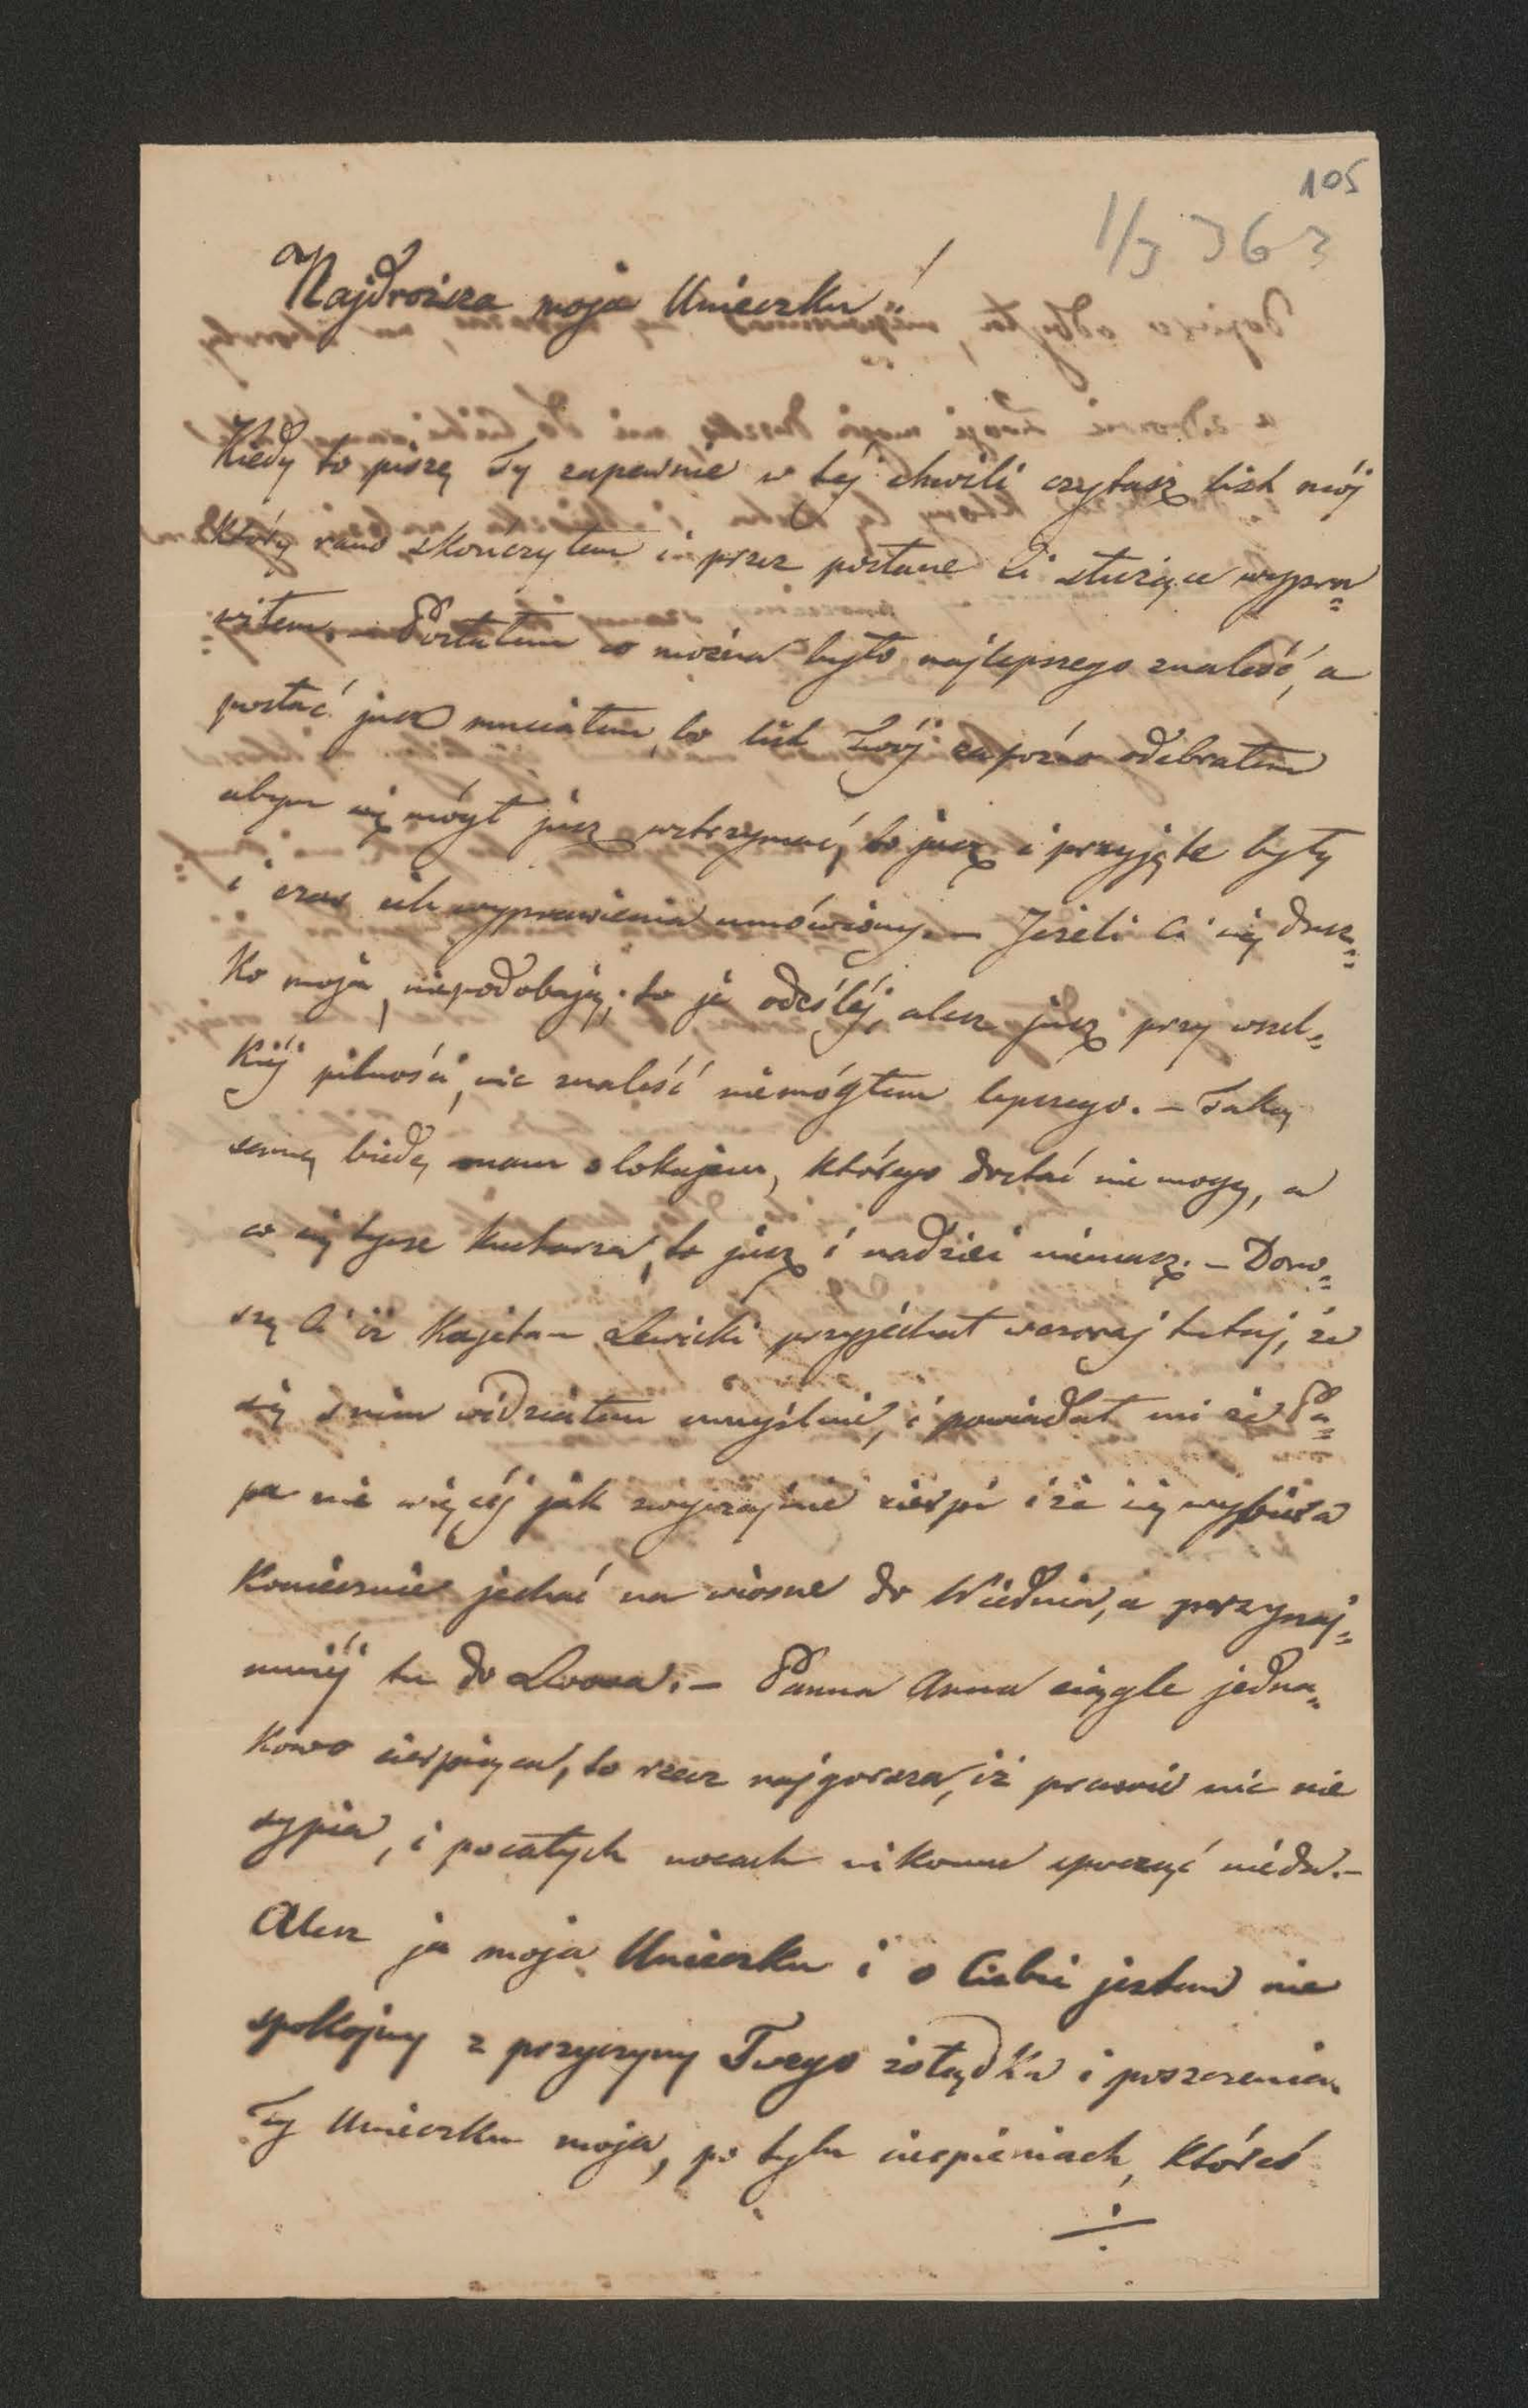 105
1/3 363
Najdroższa moja Unieczku!
Kiedy to piszę Ty zapewnie w téj chwili czytasz list mój
który rano skończyłem i przez posłane Ci służące wypra=
wiłem. – Posłałem co można było najlepszego znaleść, a
posłać jusz musiałem, bo list Twój zapóźno odebrałem
abym się mógł jusz wstrzymać, bo jusz i przyjęte były
i czas ich wyprawienia umówiony. – Jeżeli Ci się dusz=
ko moja, niepodobają, to je odeśléj, alesz jusz przy wszel=
kiéj pilności, nic znaleść niemógłem lepszego. – Taką
samą biedę mam z lokajem, którego dostać nie mogę, a
co się tycze kucharza, to jusz i nadziei niemasz. – Dono=
szę Ci iż Kajetan Lewicki przyjéchał wczoraj tutaj, że
się z nim widziałem umyślnie, i powiadał mi że Pa=
pa nie więcéj jak zwyczajnie cierpi i że się wybiera
koniecznie jechać na wiosne do Wiednia, a przynaj=
mniéj tu do Lwowa. – Panna Anna ciągle jedna=
kowo cierpiąca, to rzecz najgorsza, iż prawie nic nie
sypia, i pocałych nocach nikomu spocząć niéda. –
Alesz ja moja Unieczku i o Ciebie jestem nie
spokojny z przyczyny Twego żołądka i poszczenia.
Ty Unieczku moja, po tylu cierpieniach, któreś
÷